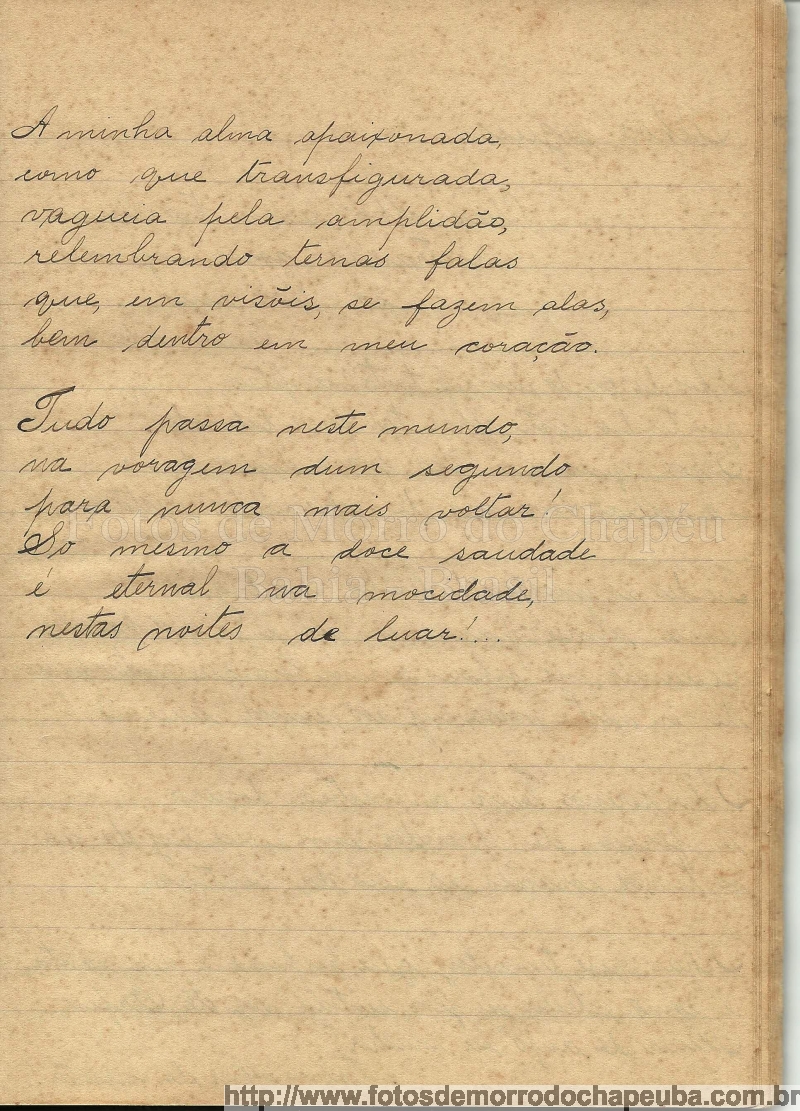 A minha alma apaixonada,
como que transfigurada,
vagueia pela amplidão,
relembrando ternas falas
que, em visões, se fazem alas,
bem dentro em meu coração.
Tudo passa neste mundo,
na voragem dum segundo
para nunca mais voltar!
Fotos de Morro do Chapéu
So mesmo a doce saudade
Bahia - Brasil
é eternal na mocidade,
nestas noites de luar!...
http://www.fotosdemorrodochapeuba.com.br